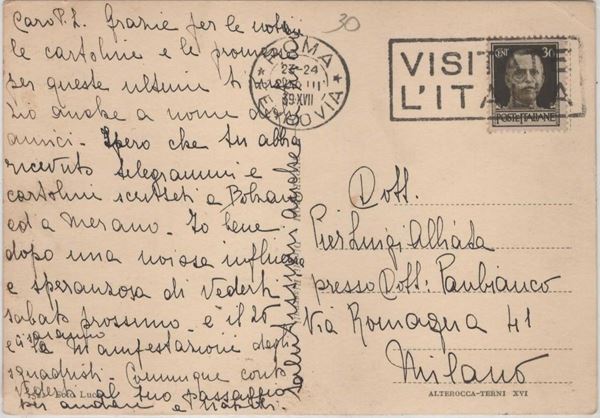 Caro P. L. Grazie per le notizie
le cartoline e le promesse
per queste ultimi ti
zio anche a nome degli
amici. Spero che tu abbia
ricevuto telegrammi e
cartoline scritteti a Bolzano
ed a Merano. Io bene
dopo una noiosa influenza
e speranzosa di vederti
sabato prossimo. è il 25
e ci saranno
la manifestazione degli
squadristi. Comunque conto
vederti al tuo passaggio
per andare e
saluti anche
30
ROMA
23-24
III
39 XVII
FERROVIA
VISITATE
L'ITALIA
CENT 30
POSTE ITALIANE
Dott.
Pier Luigi Alliata
presso Dott. Panbianco
Via Romagna 41
Milano
Fot. Luc
ALTEROCCA-TERNI XVI